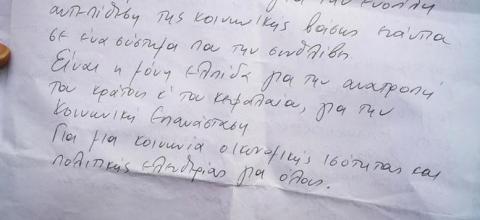 για την ένοπλη
αντεπίθεση της κοινωνικής βάσης ενάντια
σε ένα σύστημα που την συνθλίβει.
Είναι η μόνη ελπίδα για την ανατροπή
του κράτους κ' του κεφαλαίου, για την
Κοινωνική Επανάσταση
Για μια κοινωνία οικονομικής ισότητας και
πολιτικής ελευθερίας για όλους.